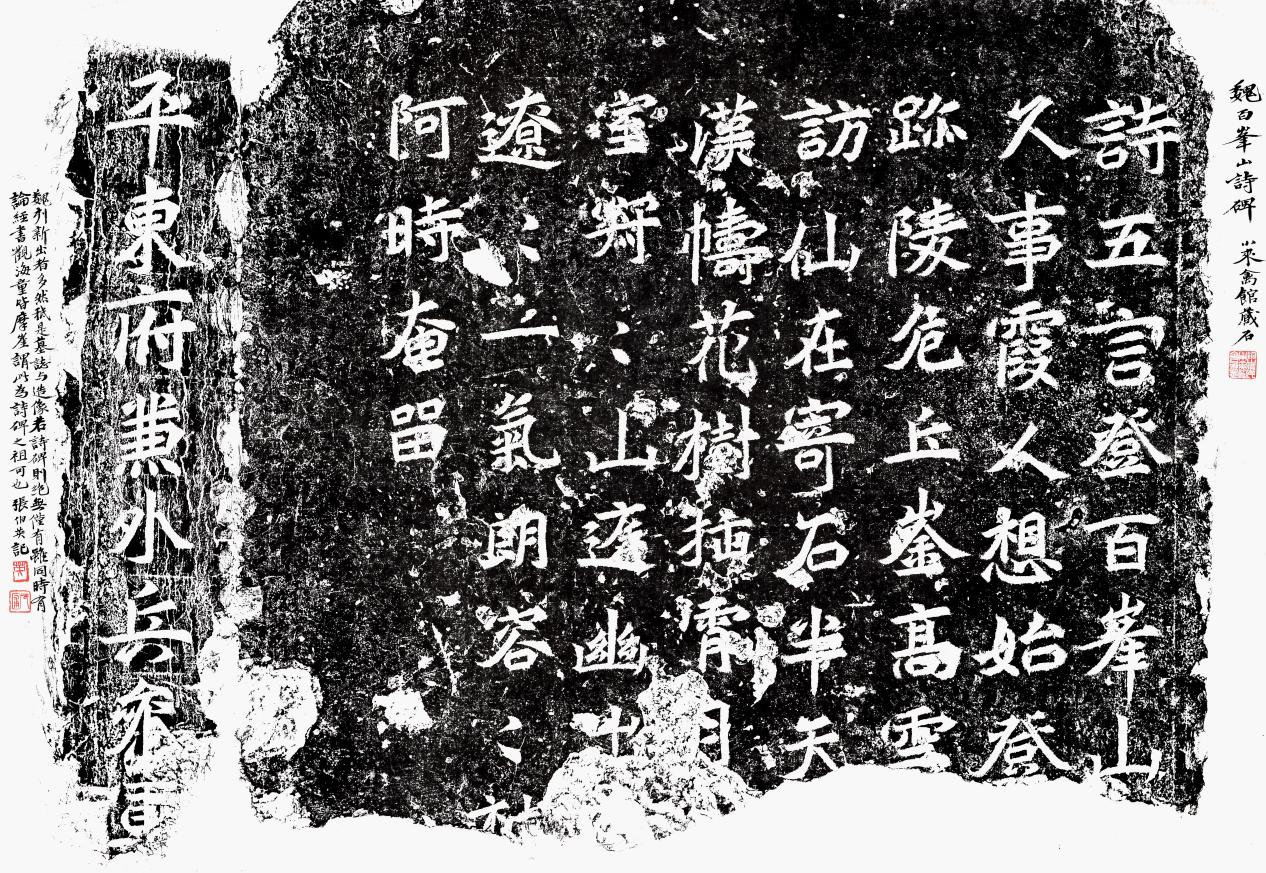 魏百峯山詩碑 小萊禽館藏石
詩五言登百峯山
久事霞人想始登
跡陵危丘崟高雪
訪仙在寄石半天
漢幬花樹插霄月
室
山遶幽中
遼〻一氣朗容〻
阿時奄留
平東府兼外兵參
魏刻新出者多然非是墓誌与造像若詩碑則絶無僅有雖同時有
論經書觀海童皆摩崖謂此為詩碑之祖可也 張伯英記